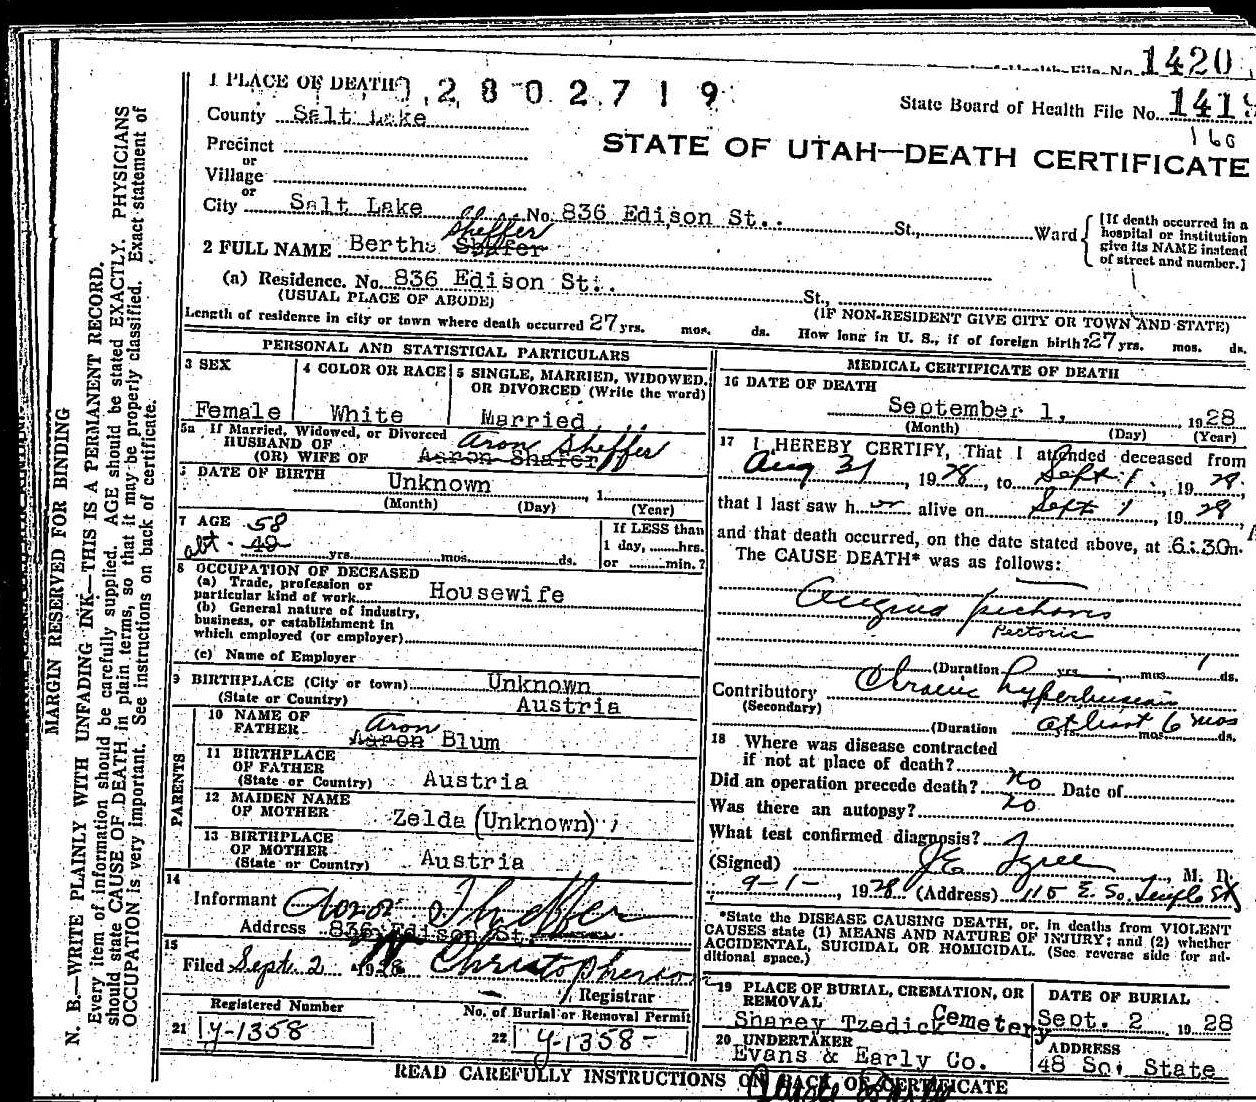 1420
1 PLACE OF DEATH 2 8 0 2 7 1 9
State Board of Health File No. 1419
160
County Salt Lake
STATE OF UTAH—DEATH CERTIFICATE
Precinct
or
Village
or
City Salt Lake No. 836 Edison St. St., Ward
[If death occurred in a
hospital or institution
give its NAME instead
of street and number.]
Sheffer
2 FULL NAME Bertha Shafer
(a) Residence. No. 836 Edison St. St.,
(USUAL PLACE OF ABODE)
(IF NON-RESIDENT GIVE CITY OR TOWN AND STATE)
Length of residence in city or town where death occurred 27 yrs. mos. ds. How long in U. S., if of foreign birth? 27 yrs. mos. ds.
PERSONAL AND STATISTICAL PARTICULARS
3 SEX
Female
4 COLOR OR RACE
White
5 SINGLE, MARRIED, WIDOWED,
OR DIVORCED (Write the word)
Married
5a If Married, Widowed, or Divorced
HUSBAND OF
(OR) WIFE OF Aaron Shafer
Aron Sheffer
DATE OF BIRTH Unknown , 1
(Month) (Day) (Year)
7 AGE 58
abt. 40 yrs. mos. ds.
If LESS than
1 day, hrs.
or min.?
8 OCCUPATION OF DECEASED
(a) Trade, profession or
particular kind of work Housewife
(b) General nature of industry,
business, or establishment in
which employed (or employer)
(c) Name of Employer
9 BIRTHPLACE (City or town) Unknown
(State or Country) Austria
PARENTS
10 NAME OF
FATHER Aaron Blum
Aron
11 BIRTHPLACE
OF FATHER
(State or Country) Austria
12 MAIDEN NAME
OF MOTHER Zelda (Unknown)
13 BIRTHPLACE
OF MOTHER
(State or Country) Austria
14
Informant Aron Sheffer
Address 836 Edison St.
15
Filed Sept. 2 1928 Christopherson
Registrar
Registered Number
21 y-1358
No. of Burial or Removal Permit
22 y-1358-
MEDICAL CERTIFICATE OF DEATH
16 DATE OF DEATH
September 1, 1928
(Month) (Day) (Year)
17 I HEREBY CERTIFY, That I attended deceased from
Aug 31, 1928, to Sept 1, 1928,
that I last saw her alive on Sept 1, 1928,
and that death occurred, on the date stated above, at 6:30
The CAUSE DEATH* was as follows:
Angina pectoris
Pectoris
(Duration yrs. mos. 1 ds.
Contributory
(Secondary)
(Duration at least 6 mos ds.
18 Where was disease contracted
if not at place of death?
Did an operation precede death? no Date of
Was there an autopsy? no
What test confirmed diagnosis?
(Signed) J E Tyree, M. D.
9-1- 1928 (Address) 115 E. So. Temple St
*State the DISEASE CAUSING DEATH, or, in deaths from VIOLENT
CAUSES state (1) MEANS AND NATURE OF INJURY; and (2) whether
ACCIDENTAL, SUICIDAL OR HOMICIDAL. (See reverse side for ad-
ditional space.)
19 PLACE OF BURIAL, CREMATION, OR
REMOVAL
Sharey Tzedick Cemetery
DATE OF BURIAL
Sept. 2 1928
20 UNDERTAKER
Evans & Early Co.
ADDRESS
48 So. State
READ CAREFULLY INSTRUCTIONS ON BACK OF CERTIFICATE
MARGIN RESERVED FOR BINDING
N. B.—WRITE PLAINLY WITH UNFADING INK—THIS IS A PERMANENT RECORD.
Every item of information should be carefully supplied. AGE should be stated EXACTLY. PHYSICIANS
should state CAUSE OF DEATH in plain terms, so that it may be properly classified. Exact statement of
OCCUPATION is very important. See instructions on back of certificate.